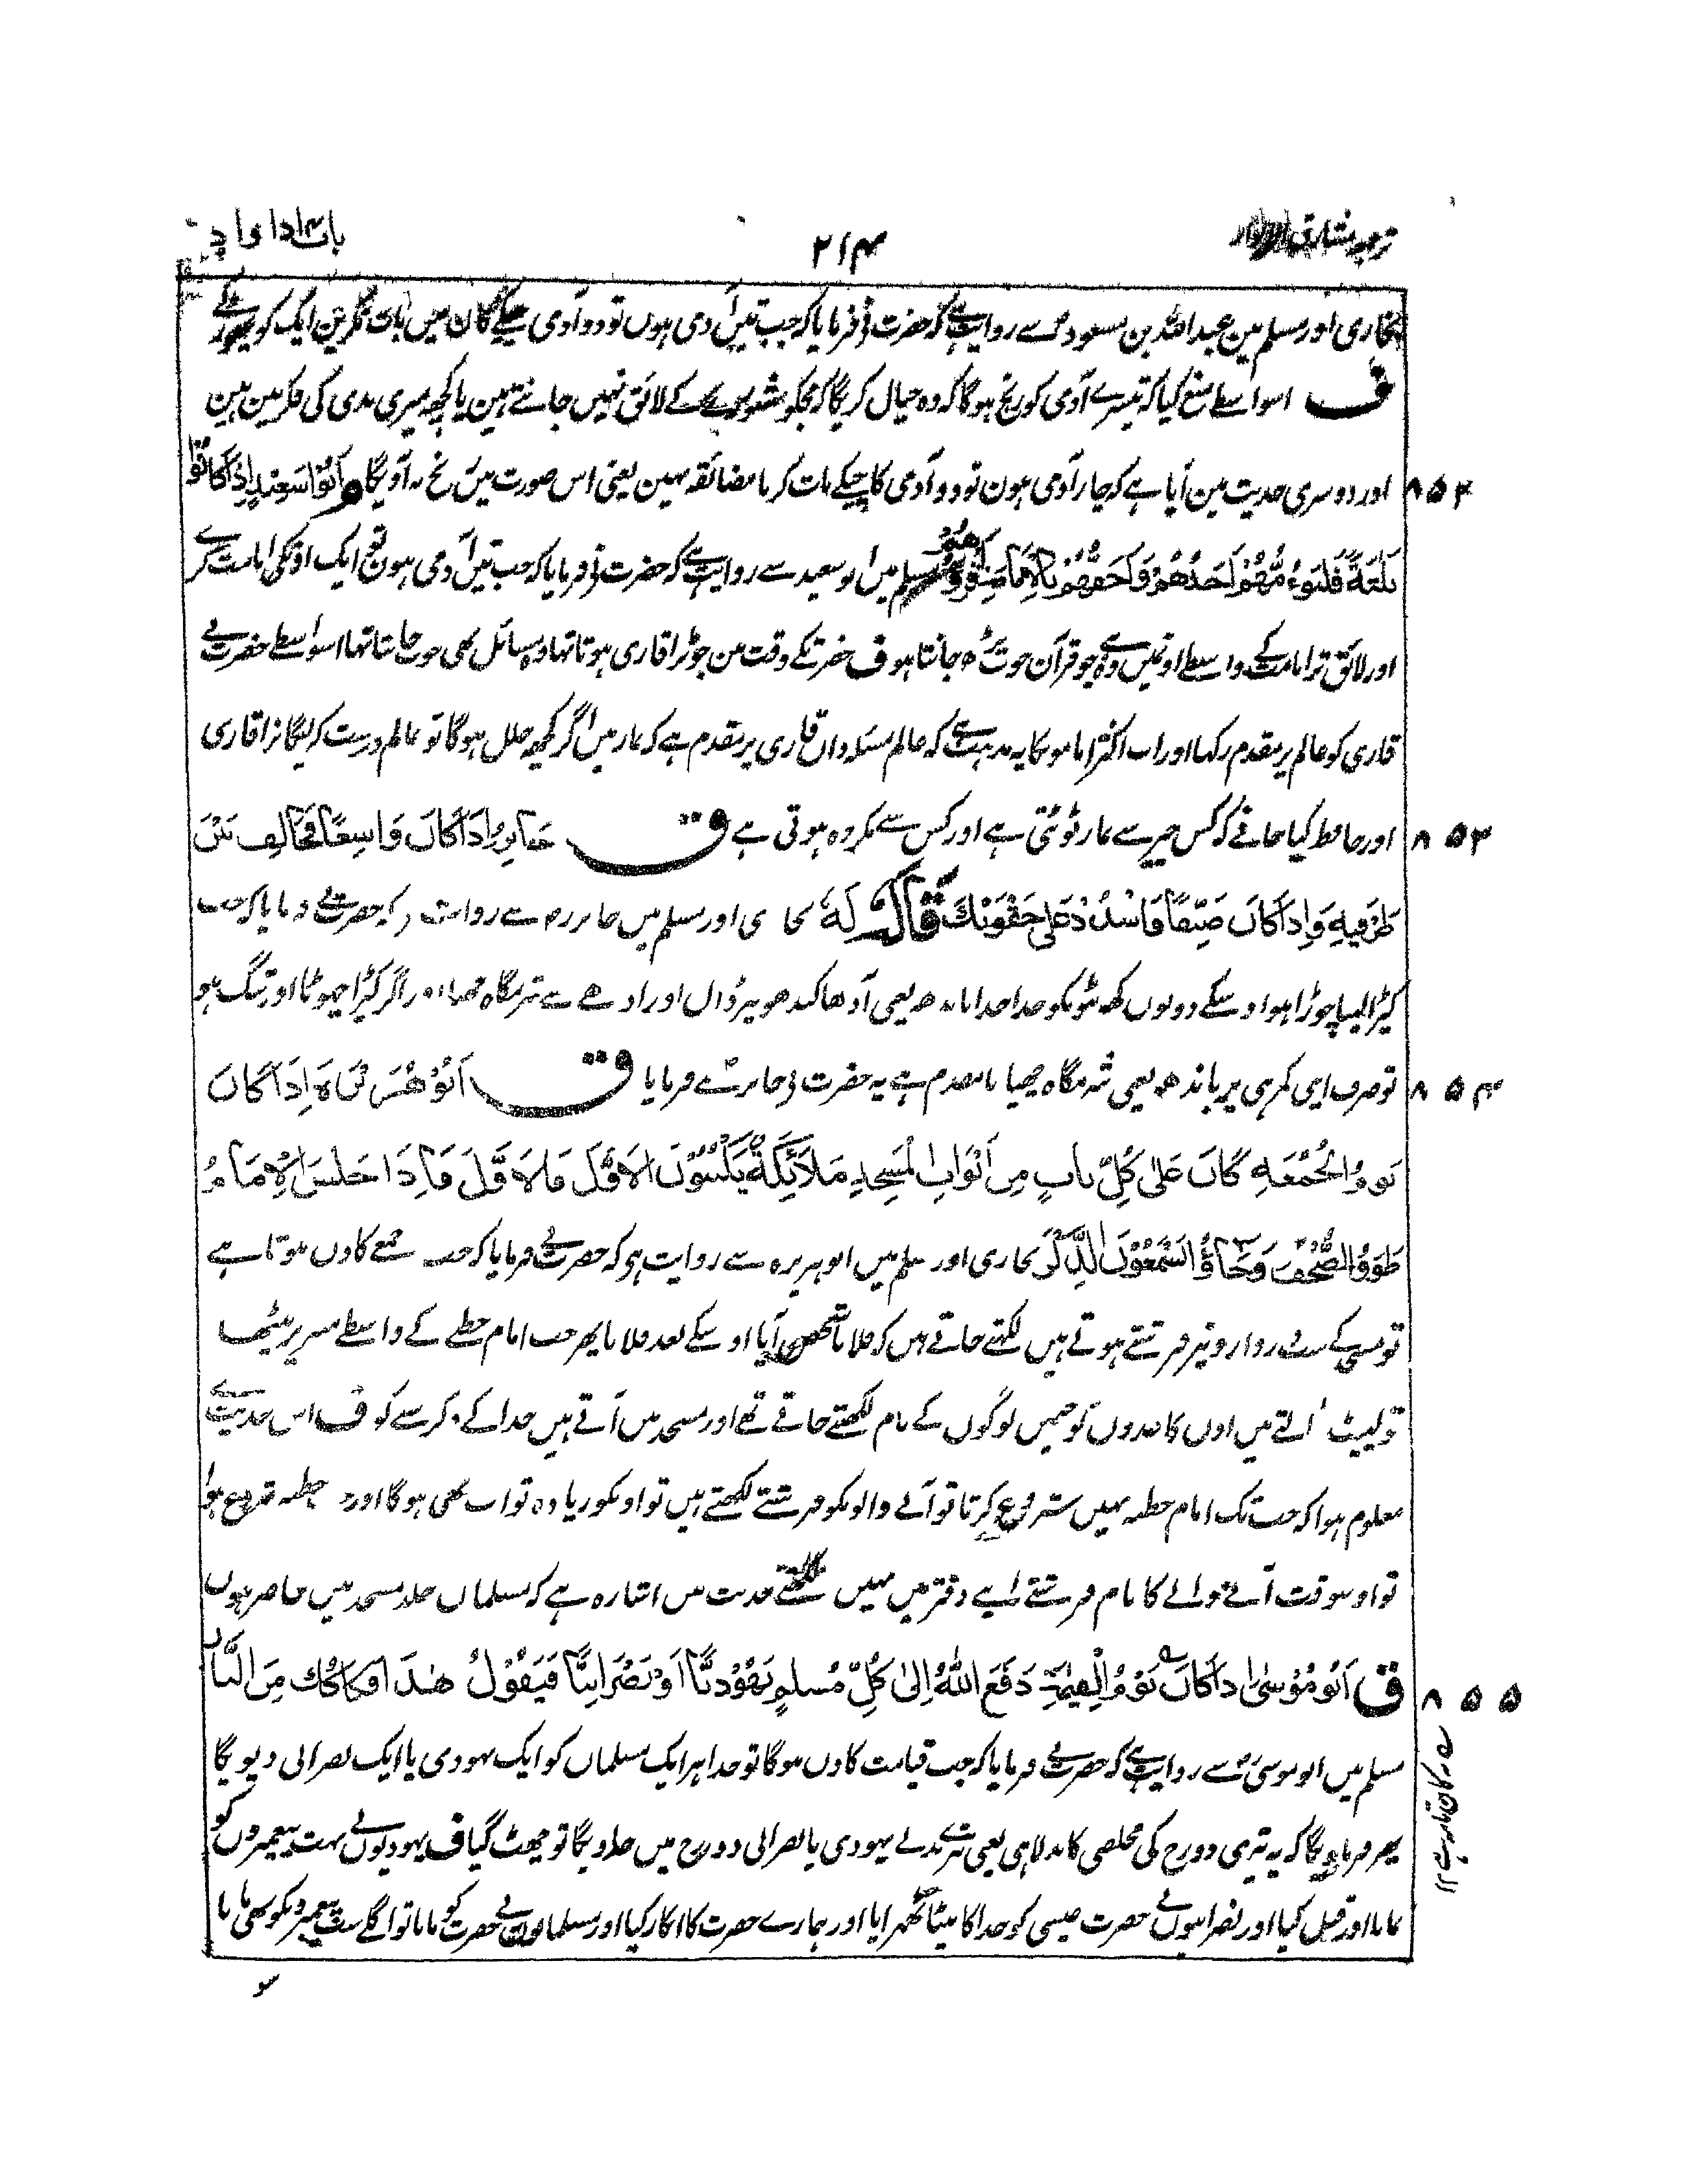 ترجمہ مشارق الانوار
۲۱۴
بخاری اور مسلم مین عبداللہ بن مسعودؓ سے روایت ہے کہ حضرت نے فرمایا کہ جب تین آدمی ہوں تو دو آدمی چپکے کان میں بات نکرین ایک کو چھوڑ کے
ف اسواسطے منع کیا کہ تیسرے آدمی کو رنج ہوگا کہ وہ خیال کریگا کہ مجکو مشورے کے لائق نہیں جانتے ہین یا کچھ میری بدی کی فکر مین ہین
۸۵۲ اور دوسری حدیث مین آیا ہے کہ چار آدمی ہون تو دو آدمی کا چپکے بات کرنا مضائقہ نہین یعنی اس صورت میں رنج نہ آویگا م اَبُوْ سَعِیْدٍ اِذَا کَانُوْا
ثَلٰثَةً فَلْیَؤُمَّهُمْ اَحَدُهُمْ وَاَحَقُّهُمْ بِالْاِمَامَةِ اَقْرَؤُهُمْ مسلم میں ابو سعید سے روایت ہے کہ حضرت نے فرمایا کہ جب تین آدمی ہون تو ایک اونکی امامت کرے
اور لائق تر امامت کے واسطے اونمیں وہ ہے جو قرآن خوب پڑھ جانتا ہو ف حضرت کے وقت من جو بڑا قاری ہوتا تھا وہ مسائل بھی خوب جانتا تھا اسواسطے حضرت نے
قاری کو عالم پر مقدم رکھا اور اب اکثر اماموں کا یہ مذہب ہے کہ عالم مسئلہ داں قاری پر مقدم ہے کہ نماز میں اگر کچھ خلل ہوگا تو عالم درست کر لیگا نرا قاری
۸۵۳ اور حافظ کیا جانے کہ کس چیز سے نماز ٹوٹتی ہے اور کس سے مکروہ ہوتی ہے ق جَابِرٌ اِذَا کَانَ وَاسِعًا فَخَالِفْ بَیْنَ
طَرَفَیْهِ وَاِذَا کَانَ ضَیِّقًا فَاشْدُدْهُ عَلٰی حَقْوَیْكَ قَالَهٗ لَهٗ بخاری اور مسلم میں جابر رض سے روایت ہے کہ حضرت نے فرمایا کہ جب
کپڑا لنبا چوڑا ہو اوسکے دونوں کھونٹونکو جدا جدا باندھ یعنی آدھا کندھوں پر ڈال اور آدھے سے شرمگاہ چھپا اور اگر کپڑا چھوٹا اور تنگ ہو
۸۵۴ تو صرف اپنی کمر ہی پر باندھ یعنی شرمگاہ چھپانا مقدم ہے یہ حضرت نے جابر سے فرمایا ق اَبُوْ هُرَیْرَةَ اِذَا کَانَ
یَوْمُ الْجُمُعَةِ کَانَ عَلٰی کُلِّ بَابٍ مِنْ اَبْوَابِ الْمَسْجِدِ مَلَائِکَةٌ یَکْتُبُوْنَ الْاَوَّلَ فَالْاَوَّلَ فَاِذَا جَلَسَ الْاِمَامُ
طَوَوُا الصُّحُفَ وَجَاؤُا یَسْتَمِعُوْنَ الذِّکْرَ بخاری اور مسلم میں ابوہریرہ سے روایت ہی کہ حضرت نے فرمایا کہ جب جمعے کا دن ہوتا ہے
تو مسجد کے سب دروازونپر فرشتے ہوتے ہیں لکھتے جاتے ہیں کہ فلانا شخص آیا اوسکے بعد فلانا پھر جب امام خطبے کے واسطے منبر پر بیٹھا
تو لپیٹ ڈالتے ہیں اون کاغذوں کو جنمیں لوگوں کے نام لکھتے جاتے تھے اور مسجد میں آتے ہیں خدا کے ذکر سننے کو ف اس حدیث سے
معلوم ہوا کہ جب تک امام خطبہ نہیں شروع کرتا تو آنے والونکو فرشتے لکھتے ہیں تو اونکو زیادہ ثواب بھی ہوگا اور جب خطبہ شروع ہوا
تو اوسوقت آنے والے کا نام فرشتے اپنے دفتر میں نہیں لکھتے حدیث میں اشارہ ہے کہ مسلمان جلد مسجد میں حاضر ہوں
۸۵۵ ق اَبُوْ مُوْسٰی اِذَا کَانَ یَوْمُ الْقِیٰمَةِ دَفَعَ اللّٰهُ اِلٰی کُلِّ مُسْلِمٍ یَهُوْدِیًّا اَوْ نَصْرَانِیًّا فَیَقُوْلُ هٰذَا فِکَاکُكَ مِنَ النَّارِ
مسلم میں ابو موسیٰؓ سے روایت ہے کہ حضرت نے فرمایا کہ جب قیامت کا دن ہوگا تو خدا ہر ایک مسلمان کو ایک یہودی یا ایک نصرانی دیویگا
پھر فرماویگا کہ یہ تیری دوزخ کی مخلصی کا بدلا ہی یعنی تیرے بدلے یہودی یا نصرانی دوزخ میں جاویگا تو چھٹ گیا ف یہودیوں نے بہت پیغمبروں کو
نمانا اور قتل کیا اور نصرانیوں نے حضرت عیسی کو خدا کا بیٹا ٹھہرایا اور ہمارے حضرت کا انکار کیا اور مسلمانوں نے حضرت کو مانا تو اگلے سب پیغمبرونکو بھی مانا